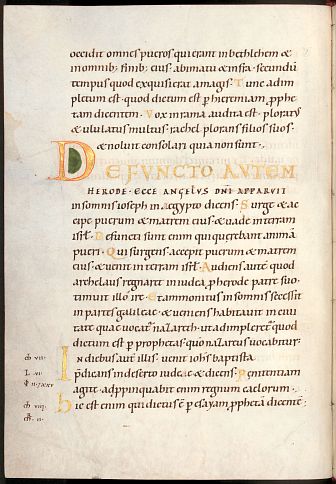 occidit omnes pueros qui erant in bethlehem &
in omnib; finib; eius. abimatu & infra. secundū
tempus quod exquisierat amagis. Tunc adim
pletum est. quod dictum est p hieremiam. pphe
tam dicentem. Vox in rama audita est. plorat'
& ululatus multus. rachel plorans filios suos.
& noluit consolari quia non sunt.
DEFUNCTO AUTEM
HERODE. ECCE ANGELVS DN̄I APPARVIT
in somnis ioseph in ægypto dicens. Surge & ac
cipe puerum & matrem eius. & uade in terram
isrl̄. Defuncti sunt enim qui querebant animā
pueri. Qui surgens. accepit puerum & matrem
eius. & uenit in terram isrl̄. Audiens autē quod
archelaus regnaret in iudea p herode patre suo.
timuit illo ire. Et ammonitus in somnis secessit
in partes galileae. & ueniens habitauit in ciui
tate quae uocat' nazareth. ut adimpleret' quod
dictum est p prophetas. quo nazareus uocabitur.
In diebus aut̄ illis. uenit ioh̄s baptista
p̄dicans in deserto iudeae & dicens. Penitentiam
agite. adppinquabit enim regnum caelorum.
hic est enim qui dictus ē p esayam. pphetā dicentē.